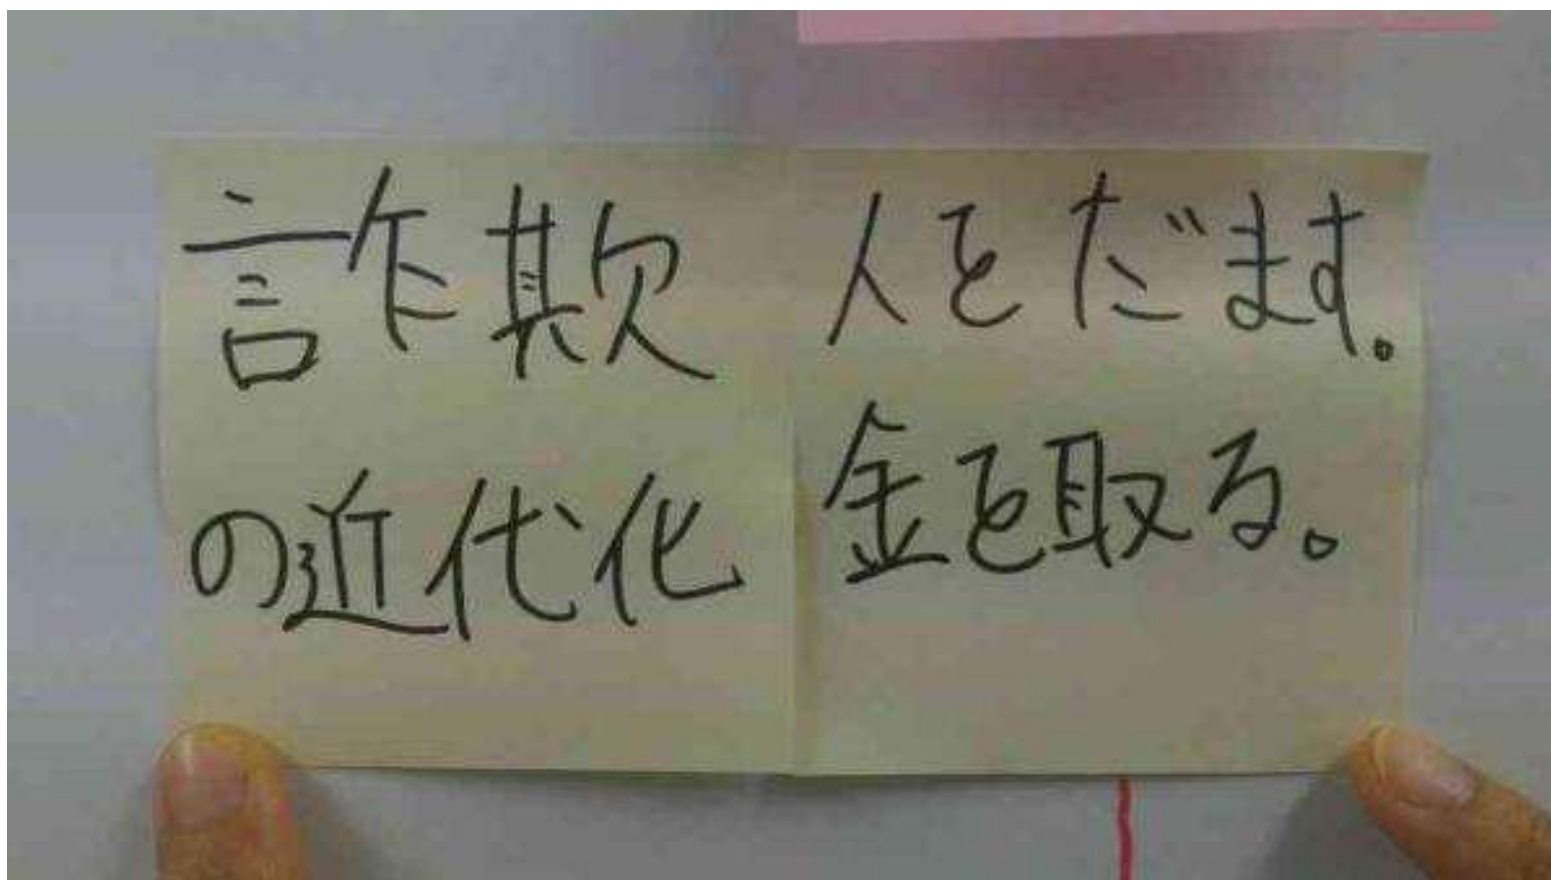 詐欺
の近代化
人をだます。
金を取る。